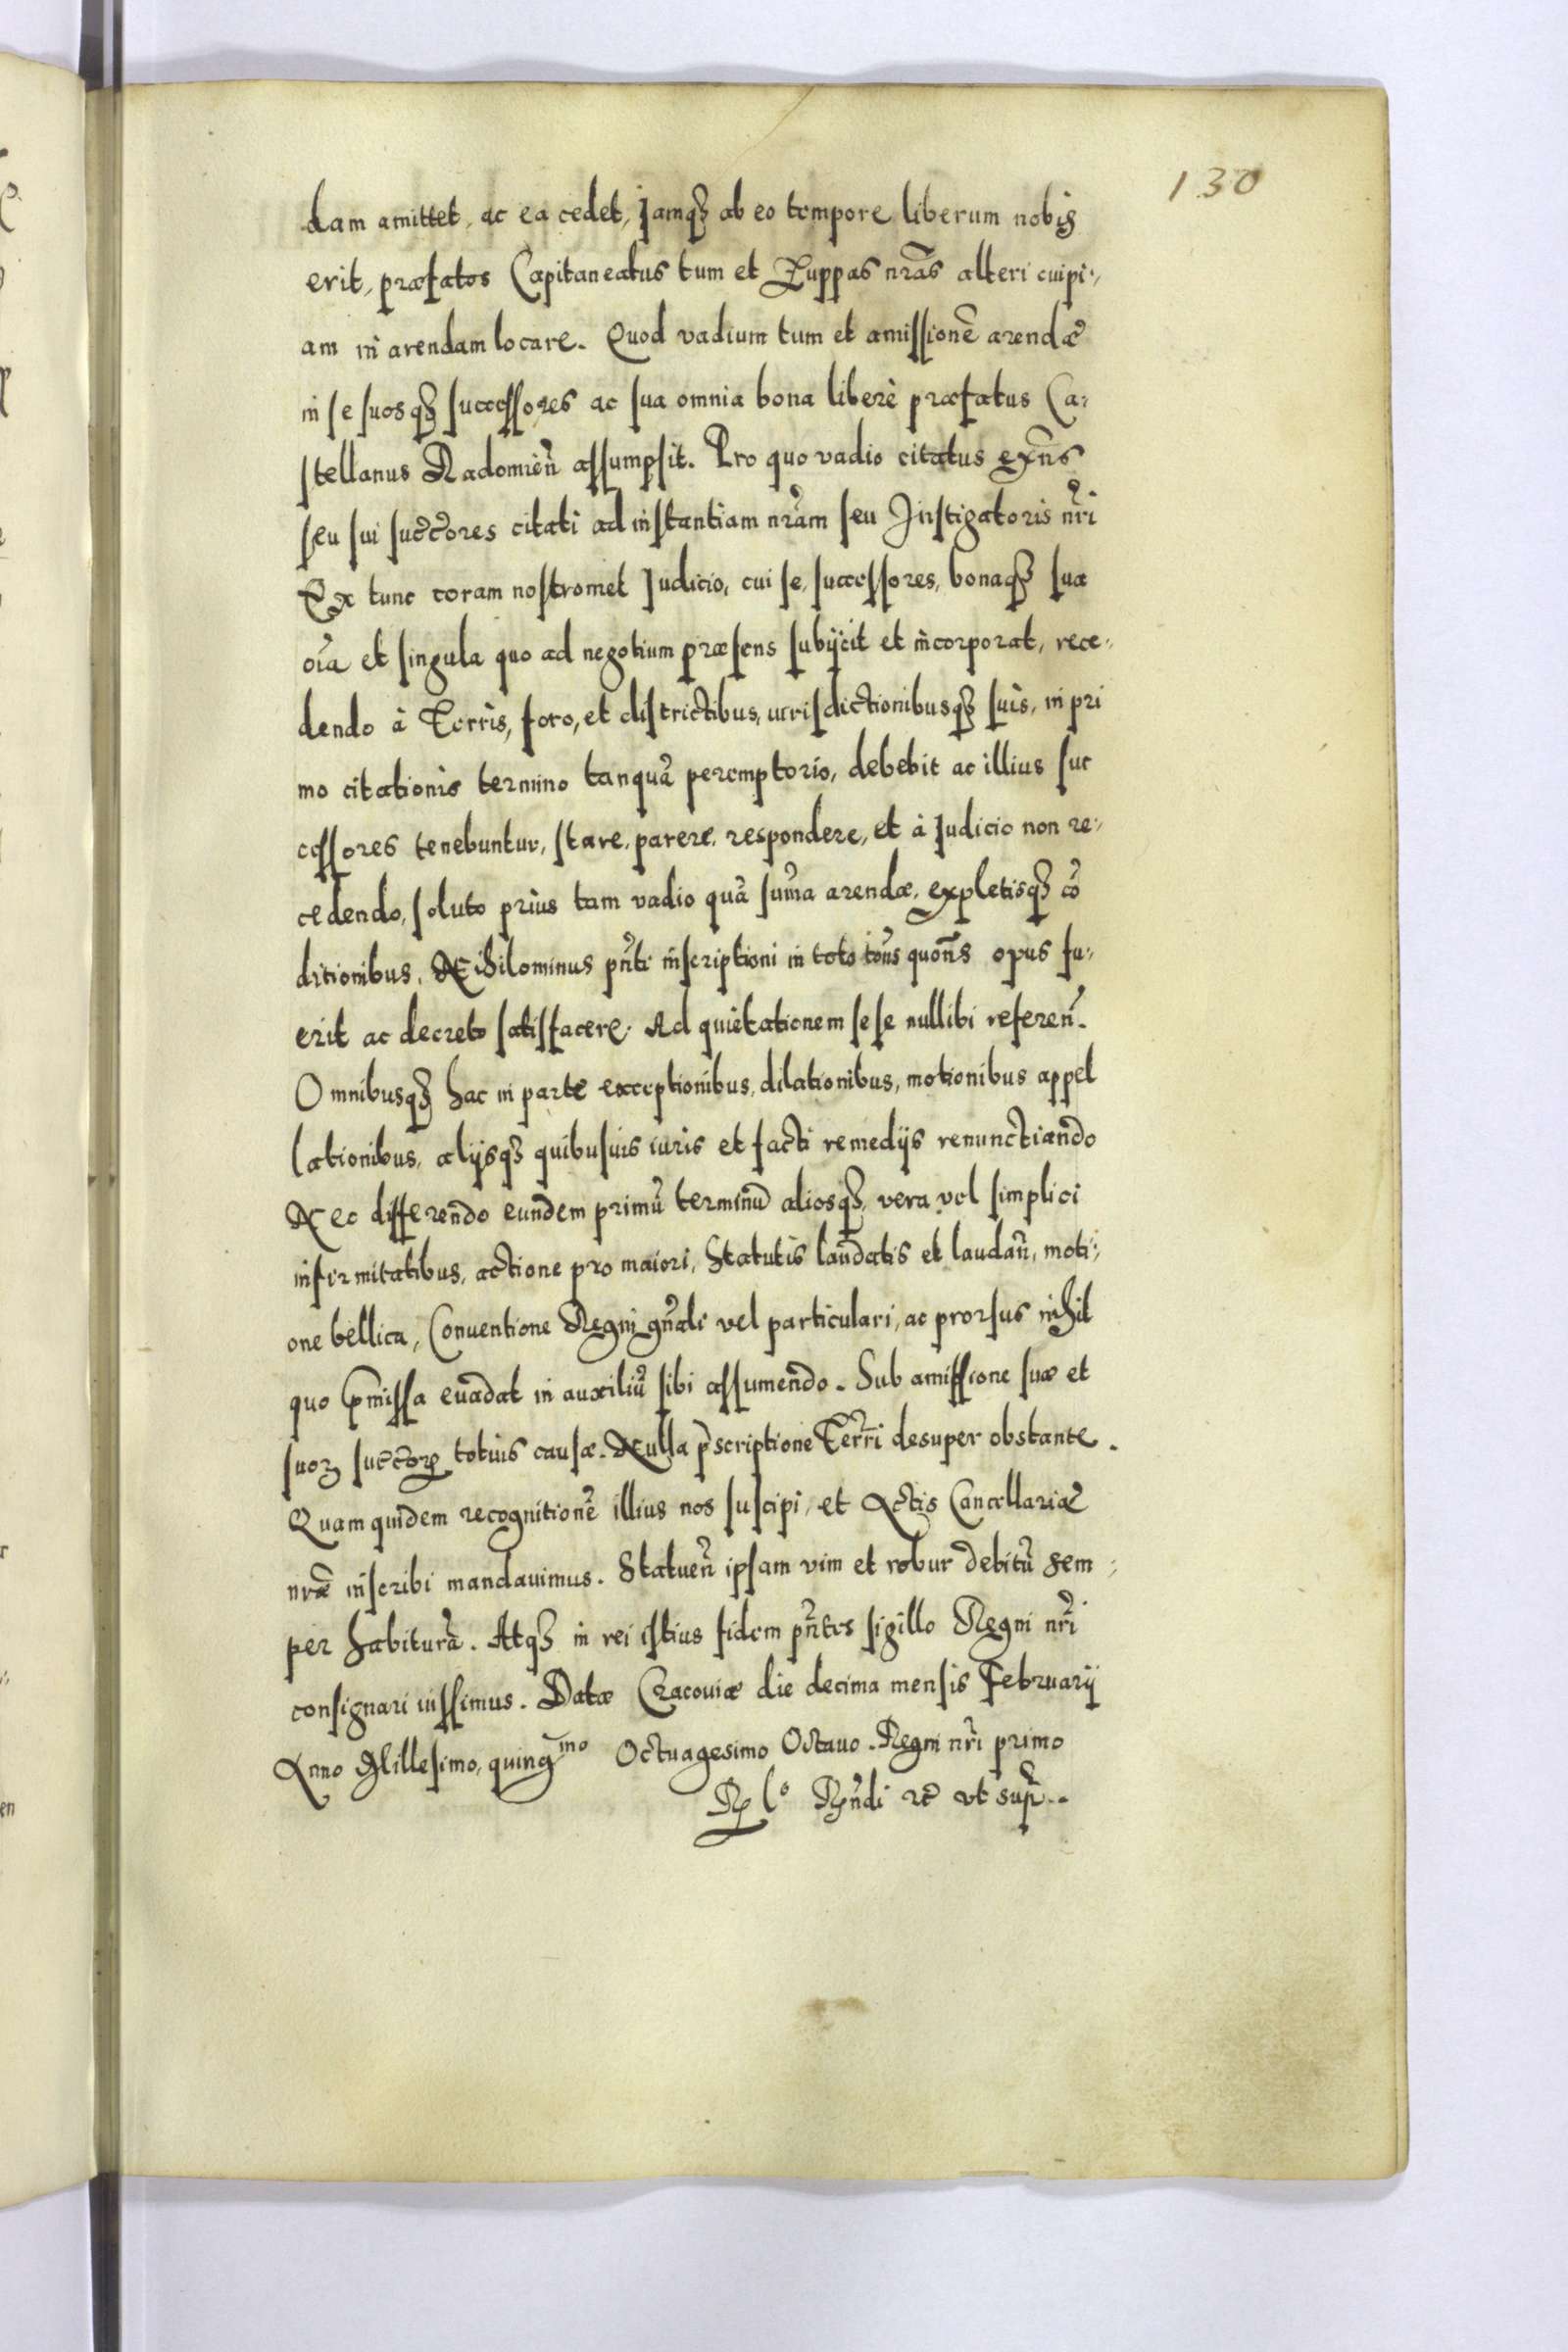 130
dam amittet, ac ea cedet, Jamqꝫ ab eo tempore liberum nobis
erit, præfatos Capitaneatus tum et Zuppas nrãs alteri cuipi:,
am in arendam locare. Quod vadium tum et amißionẽ arendæ
in se suosqꝫ successores ac sua omnia bona liberè præfatus Ca:
stellanus Radomieñ assumpsit. Pro quo vadio citatus exñs
seu sui succ̃ores citati ad instantiam nrãm seu Instigatoris nr̃i
Ex tunc coram nostromet Judicio, cui se, successores, bonaqꝫ sua
oĩa et singula quo ad negotium præsens subÿcit et incorporat, rece:
dendo à Terris, foro, et districtibus, iurisdictionibusqꝫ suis, in pri
mo citationis termino tanquã peremptorio, debebit ac illius suc
cessores tenebuntur, stare, parere, respondere, et à Judicio non re:,
cedendo, soluto prius tam vadio quã sum̃a arendæ, expletisqꝫ cõ
ditionibus, Nihilominus pñti inscriptioni in toto toties quoñs opus fu:
erit ac decreto satisfacere. Ad quietationem sese nullibi refereñ.
Omnibusqꝫ hac in parte exceptionibus, dilationibus, motionibus appel
lationibus, alÿsqꝫ quibusuis iuris et facti remedÿs renunctiando
Nec differendo eundem primũ terminũ aliosqꝫ, vera vel simplici
infirmitatibus, actione pro maiori, Statutis laudatis et laudañ, moti:,
one bellica, Conuentione Regni gñali vel particulari, ac prorsus nihil
quo p̃missa euadat in auxiliũ sibi assumendo. Sub amissione suæ et
suoꝝ succ̃oꝝ totius causæ. Nulla p̃scriptione Terr̃i desuper obstante.
Quam quidem recognitionẽ illius nos suscipi, et Actis Cancellariæ
nr̃æ inscribi mandauimus. Statueñ ipsam vim et robur debitũ sem:,
per habiturã. Atqꝫ in rei istius fidem pñtes sigillo Regni nr̃i
consignari iussimus. Datæ Cracouiæ die decima mensis Februarÿ
Anno Millesimo, quing̃mo Octuagesimo Octauo. Regni nr̃i primo
ut supr̃..